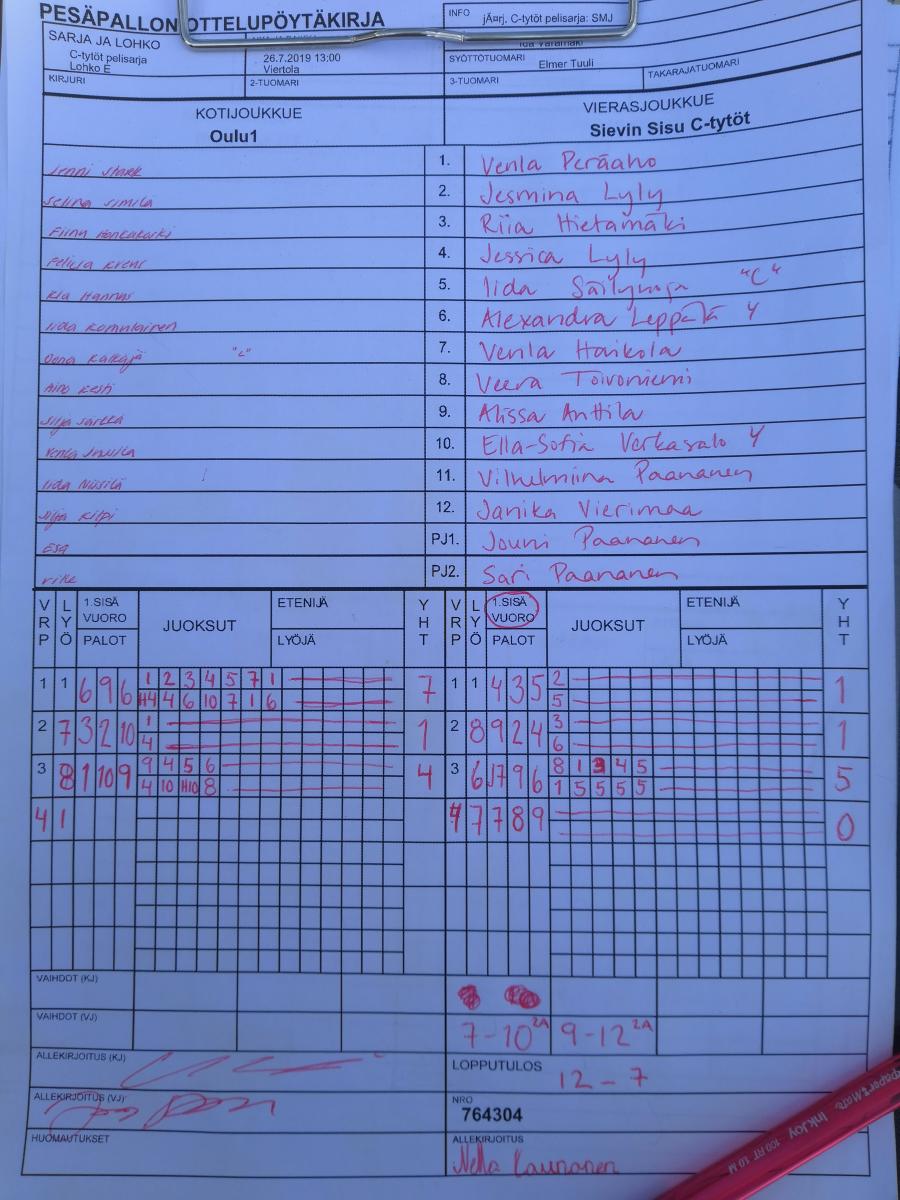 PESÄPALLON OTTELUPÖYTÄKIRJA
INFO jÃ¤rj. C-tytöt pelisarja: SMJ
SARJA JA LOHKO
C-tytöt pelisarja
Lohko E
26.7.2019 13:00
Viertola
SYÖTTÖTUOMARI
Elmer Tuuli
KIRJURI 2-TUOMARI 3-TUOMARI TAKARAJATUOMARI
KOTIJOUKKUE VIERASJOUKKUE
Oulu1 Sievin Sisu C-tytöt
1. Venla Peräaho
Selina Similä 2. Jesmina Lyly
3. Riia Hietamäki
4. Jessica Lyly
Kia Hannus 5. Iida "C"
Iida Komulainen 6. Alexandra Leppälä Y
"C" 7. Venla Haikola
Aino Kesti 8. Veera Toivoniemi
Silja 9. Alissa Anttila
Venla 10. Ella-Sofia Verkasalo Y
Iida Niisilä 11. Vilhelmiina Paananen
Silja Kilpi 12. Janika Vierimaa
Esa PJ1. Jouni Paananen
PJ2. Sari Paananen
VRP LYÖ 1.SISÄ VUORO PALOT JUOKSUT ETENIJÄ LYÖJÄ YHT VRP LYÖ 1.SISÄ VUORO PALOT JUOKSUT ETENIJÄ LYÖJÄ YHT
1 1 6 9 6 1 2 3 4 5 7 1 7 1 1 4 3 5 2 1
H4 4 6 10 7 1 6 5
2 7 3 2 10 1 1 2 8 9 2 4 3 1
4 6
3 8 1 10 9 9 4 5 6 4 3 6 J7 9 6 8 1 3 4 5 5
4 10 H10 8 1 5 5 5 5
4 1 4 7 7 8 9 0
VAIHDOT (KJ)
VAIHDOT (VJ) 7-10 2A 9-12 2A
ALLEKIRJOITUS (KJ) LOPPUTULOS 12 - 7
ALLEKIRJOITUS (VJ) NRO
764304
HUOMAUTUKSET ALLEKIRJOITUS
Nella Kaunanen
InkJoy 100 RT 1.0 M